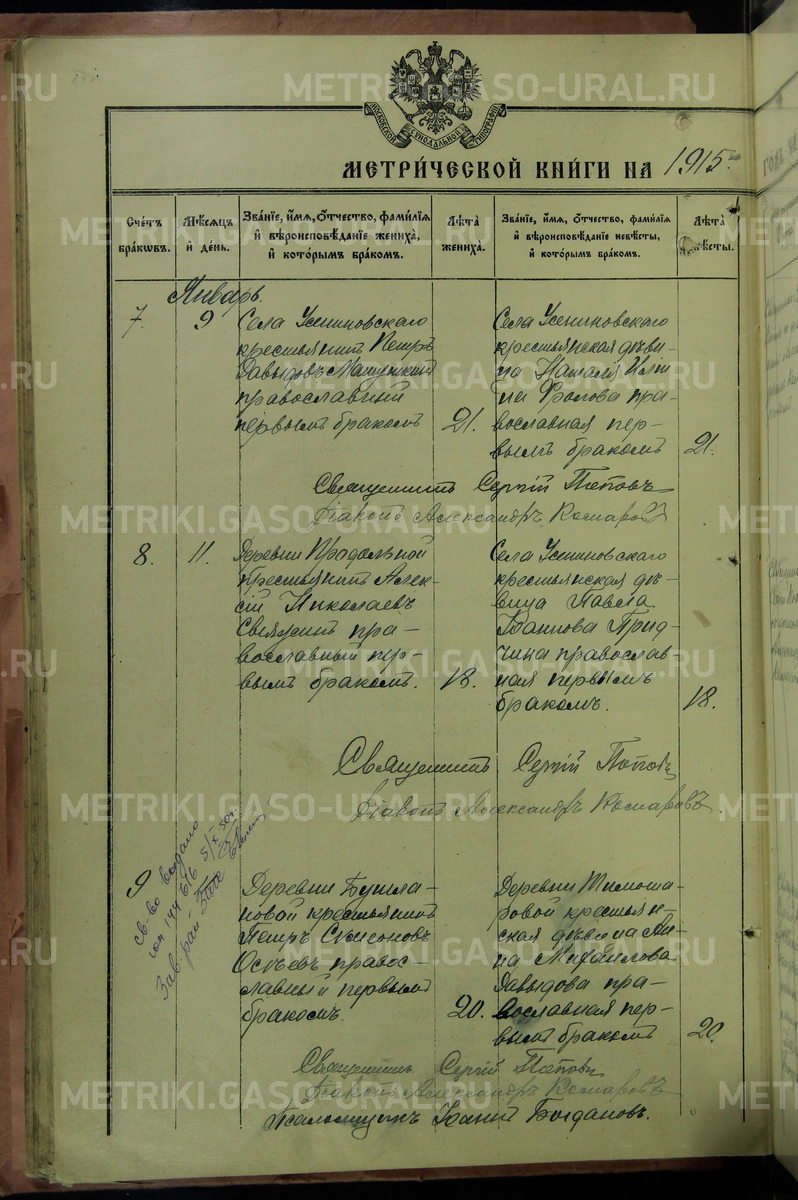 METRIKI.GASO-URAL.RU
МОСКОВСКОЙ СѴНОДАЛЬНОЙ ТИПОГРАФІИ
МЕТРИ́ЧЕСКОЙ КНИ́ГИ НА 1915
Сче́тъ бра́кωвъ.
Мѣ́сяцъ и҆ де́нь.
Зва́нїе, и҆́мя, ѻ҆́тчество, фами́лїя
и҆ вѣроисповѣ́данїе жениха̀,
и҆ кото́рымъ бра́комъ.
Лѣ́та жениха̀.
Зва́нїе, и҆́мя, ѻ҆́тчество, фами́лїя
и҆ вѣроисповѣ́данїе невѣ́сты,
и҆ кото́рымъ бра́комъ.
Лѣ́та
Январь.
7. 9
Села Усениновскаго
крестьянинъ Петръ
Давыдовъ
православный
первымъ бракомъ
21.
Села Усениновскаго
крестьянская дѣви-
ца Наталія Иліи
на Фролова пра-
вославная пер-
вымъ бракомъ
21.
Священникъ Сергій Поповъ
Діаконъ Александръ Комаровъ
8. 11.
Деревни
крестьянинъ Алек-
сій Николаевъ
пра-
вославный пер-
вымъ бракомъ.
18.
Села Усениновскаго
крестьянская дѣ-
вица Павла
Іоаннова Прид-
чина православ
ная первымъ
бракомъ.
18.
Священникъ Сергій Поповъ
Діаконъ Александръ Комаровъ
св-во выдано
144616 5/X-50г.
Зав. рай
9
Деревни Бушла-
новой крестьянинъ
Петръ Симеоновъ
правос-
лавный первымъ
бракомъ.
20.
Деревни Тимоша-
ровой крестьян-
ская дѣвица Ан-
на Михайлова
Давыдова пра-
вославная пер-
вымъ бракомъ
20.
Священникъ Сергій Поповъ
Діаконъ Александръ Комаровъ
Псаломщикъ Іоаннъ Богдановъ.